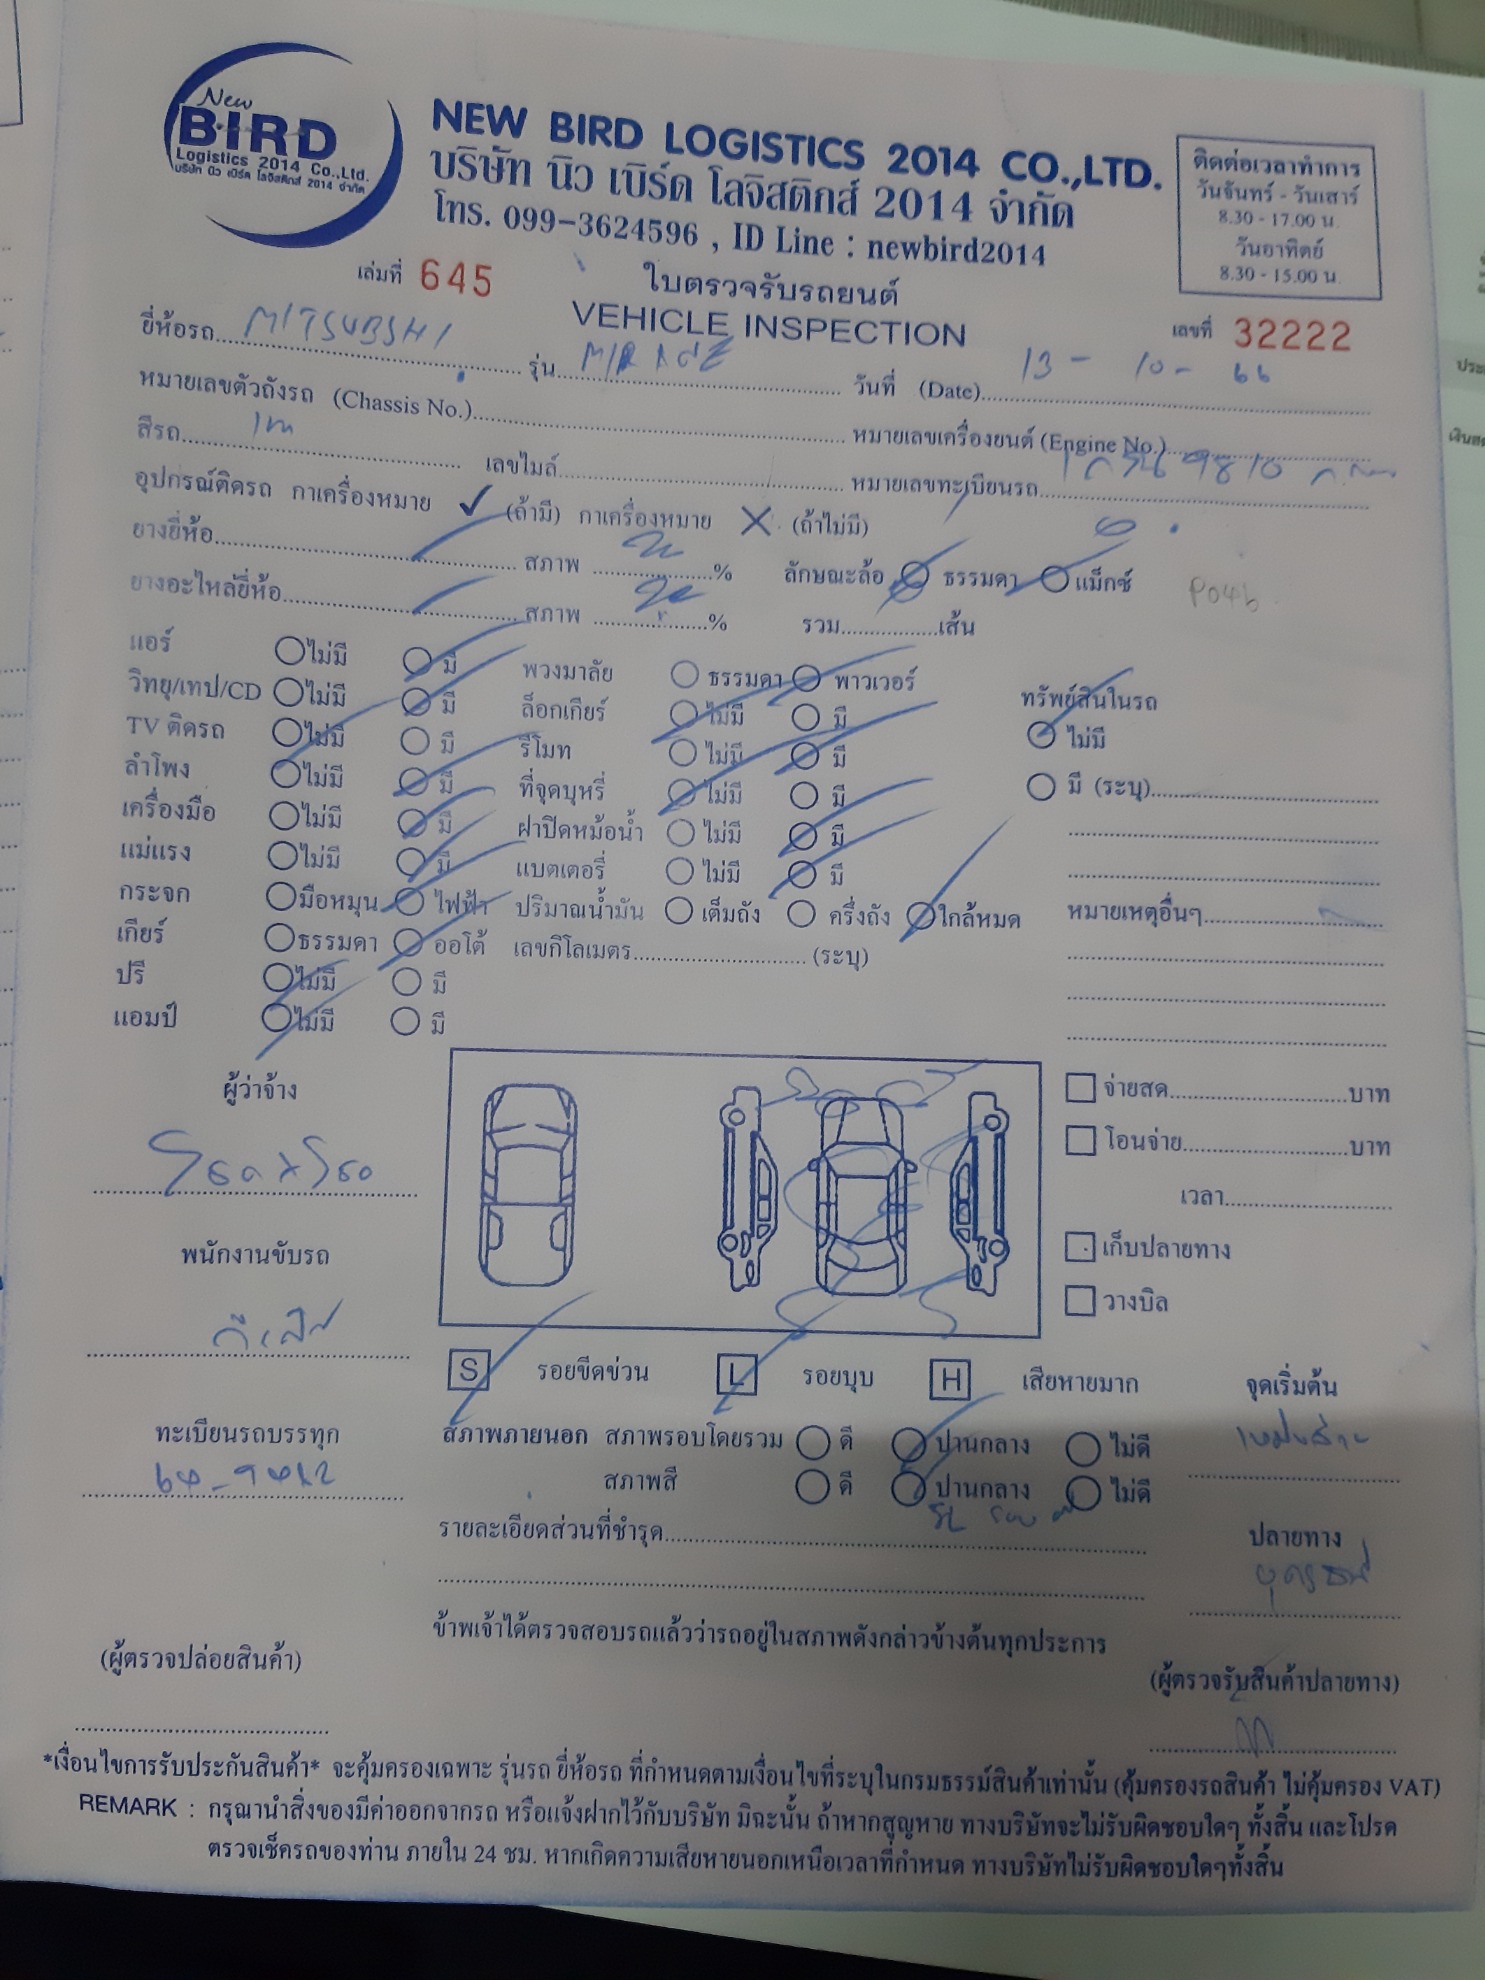 New
BIRD
Logistics 2014 Co.,Ltd.
บริษัท นิว เบิร์ด โลจิสติกส์ 2014 จำกัด
NEW BIRD LOGISTICS 2014 CO.,LTD.
บริษัท นิว เบิร์ด โลจิสติกส์ 2014 จำกัด
โทร. 099-3624596 , ID Line : newbird2014
ติดต่อเวลาทำการ
วันจันทร์ - วันเสาร์
8.30 - 17.00 น.
วันอาทิตย์
8.30 - 15.00 น.
เล่มที่ 645
ใบตรวจรับรถยนต์
VEHICLE INSPECTION
เลขที่ 32222
ยี่ห้อรถ MITSUBSHI รุ่น MIRAGE วันที่ (Date) 13 - 10 - 66
หมายเลขตัวถังรถ (Chassis No.) หมายเลขเครื่องยนต์ (Engine No.)
สีรถ เทา เลขไมล์ หมายเลขทะเบียนรถ 9810
อุปกรณ์ติดรถ กาเครื่องหมาย ✓ (ถ้ามี) กาเครื่องหมาย X (ถ้าไม่มี)
ยางยี่ห้อ สภาพ % ลักษณะล้อ ธรรมดา แม็กซ์
ยางอะไหล่ยี่ห้อ สภาพ % รวม เส้น
แอร์ ไม่มี มี พวงมาลัย ธรรมดา พาวเวอร์
วิทยุ/เทป/CD ไม่มี มี ล็อกเกียร์ ไม่มี มี ทรัพย์สินในรถ
TV ติดรถ ไม่มี มี รีโมท ไม่มี มี ไม่มี
ลำโพง ไม่มี มี ที่จุดบุหรี่ ไม่มี มี มี (ระบุ)
เครื่องมือ ไม่มี มี ฝาปิดหม้อน้ำ ไม่มี มี
แม่แรง ไม่มี มี แบตเตอรี่ ไม่มี มี
กระจก มือหมุน ไฟฟ้า ปริมาณน้ำมัน เต็มถัง ครึ่งถัง ใกล้หมด หมายเหตุอื่นๆ
เกียร์ ธรรมดา ออโต้ เลขกิโลเมตร (ระบุ)
ปรี ไม่มี มี
แอมป์ ไม่มี มี
ผู้ว่าจ้าง
จ่ายสด บาท
โอนจ่าย บาท
เวลา
พนักงานขับรถ
เก็บปลายทาง
วางบิล
S รอยขีดข่วน L รอยบุบ H เสียหายมาก
จุดเริ่มต้น
ทะเบียนรถบรรทุก
สภาพภายนอก สภาพรอบโดยรวม ดี ปานกลาง ไม่ดี
สภาพสี ดี ปานกลาง ไม่ดี
รายละเอียดส่วนที่ชำรุด
ปลายทาง
อุดรธานี
ข้าพเจ้าได้ตรวจสอบรถแล้วว่ารถอยู่ในสภาพดังกล่าวข้างต้นทุกประการ
(ผู้ตรวจปล่อยสินค้า)
(ผู้ตรวจรับสินค้าปลายทาง)
*เงื่อนไขการรับประกันสินค้า* จะคุ้มครองเฉพาะ รุ่นรถ ยี่ห้อรถ ที่กำหนดตามเงื่อนไขที่ระบุในกรมธรรม์สินค้าเท่านั้น (คุ้มครองรถสินค้า ไม่คุ้มครอง VAT)
REMARK : กรุณานำสิ่งของมีค่าออกจากรถ หรือแจ้งฝากไว้กับบริษัท มิฉะนั้น ถ้าหากสูญหาย ทางบริษัทจะไม่รับผิดชอบใดๆ ทั้งสิ้น และโปรด
ตรวจเช็ครถของท่าน ภายใน 24 ชม. หากเกิดความเสียหายนอกเหนือเวลาที่กำหนด ทางบริษัทไม่รับผิดชอบใดๆทั้งสิ้น